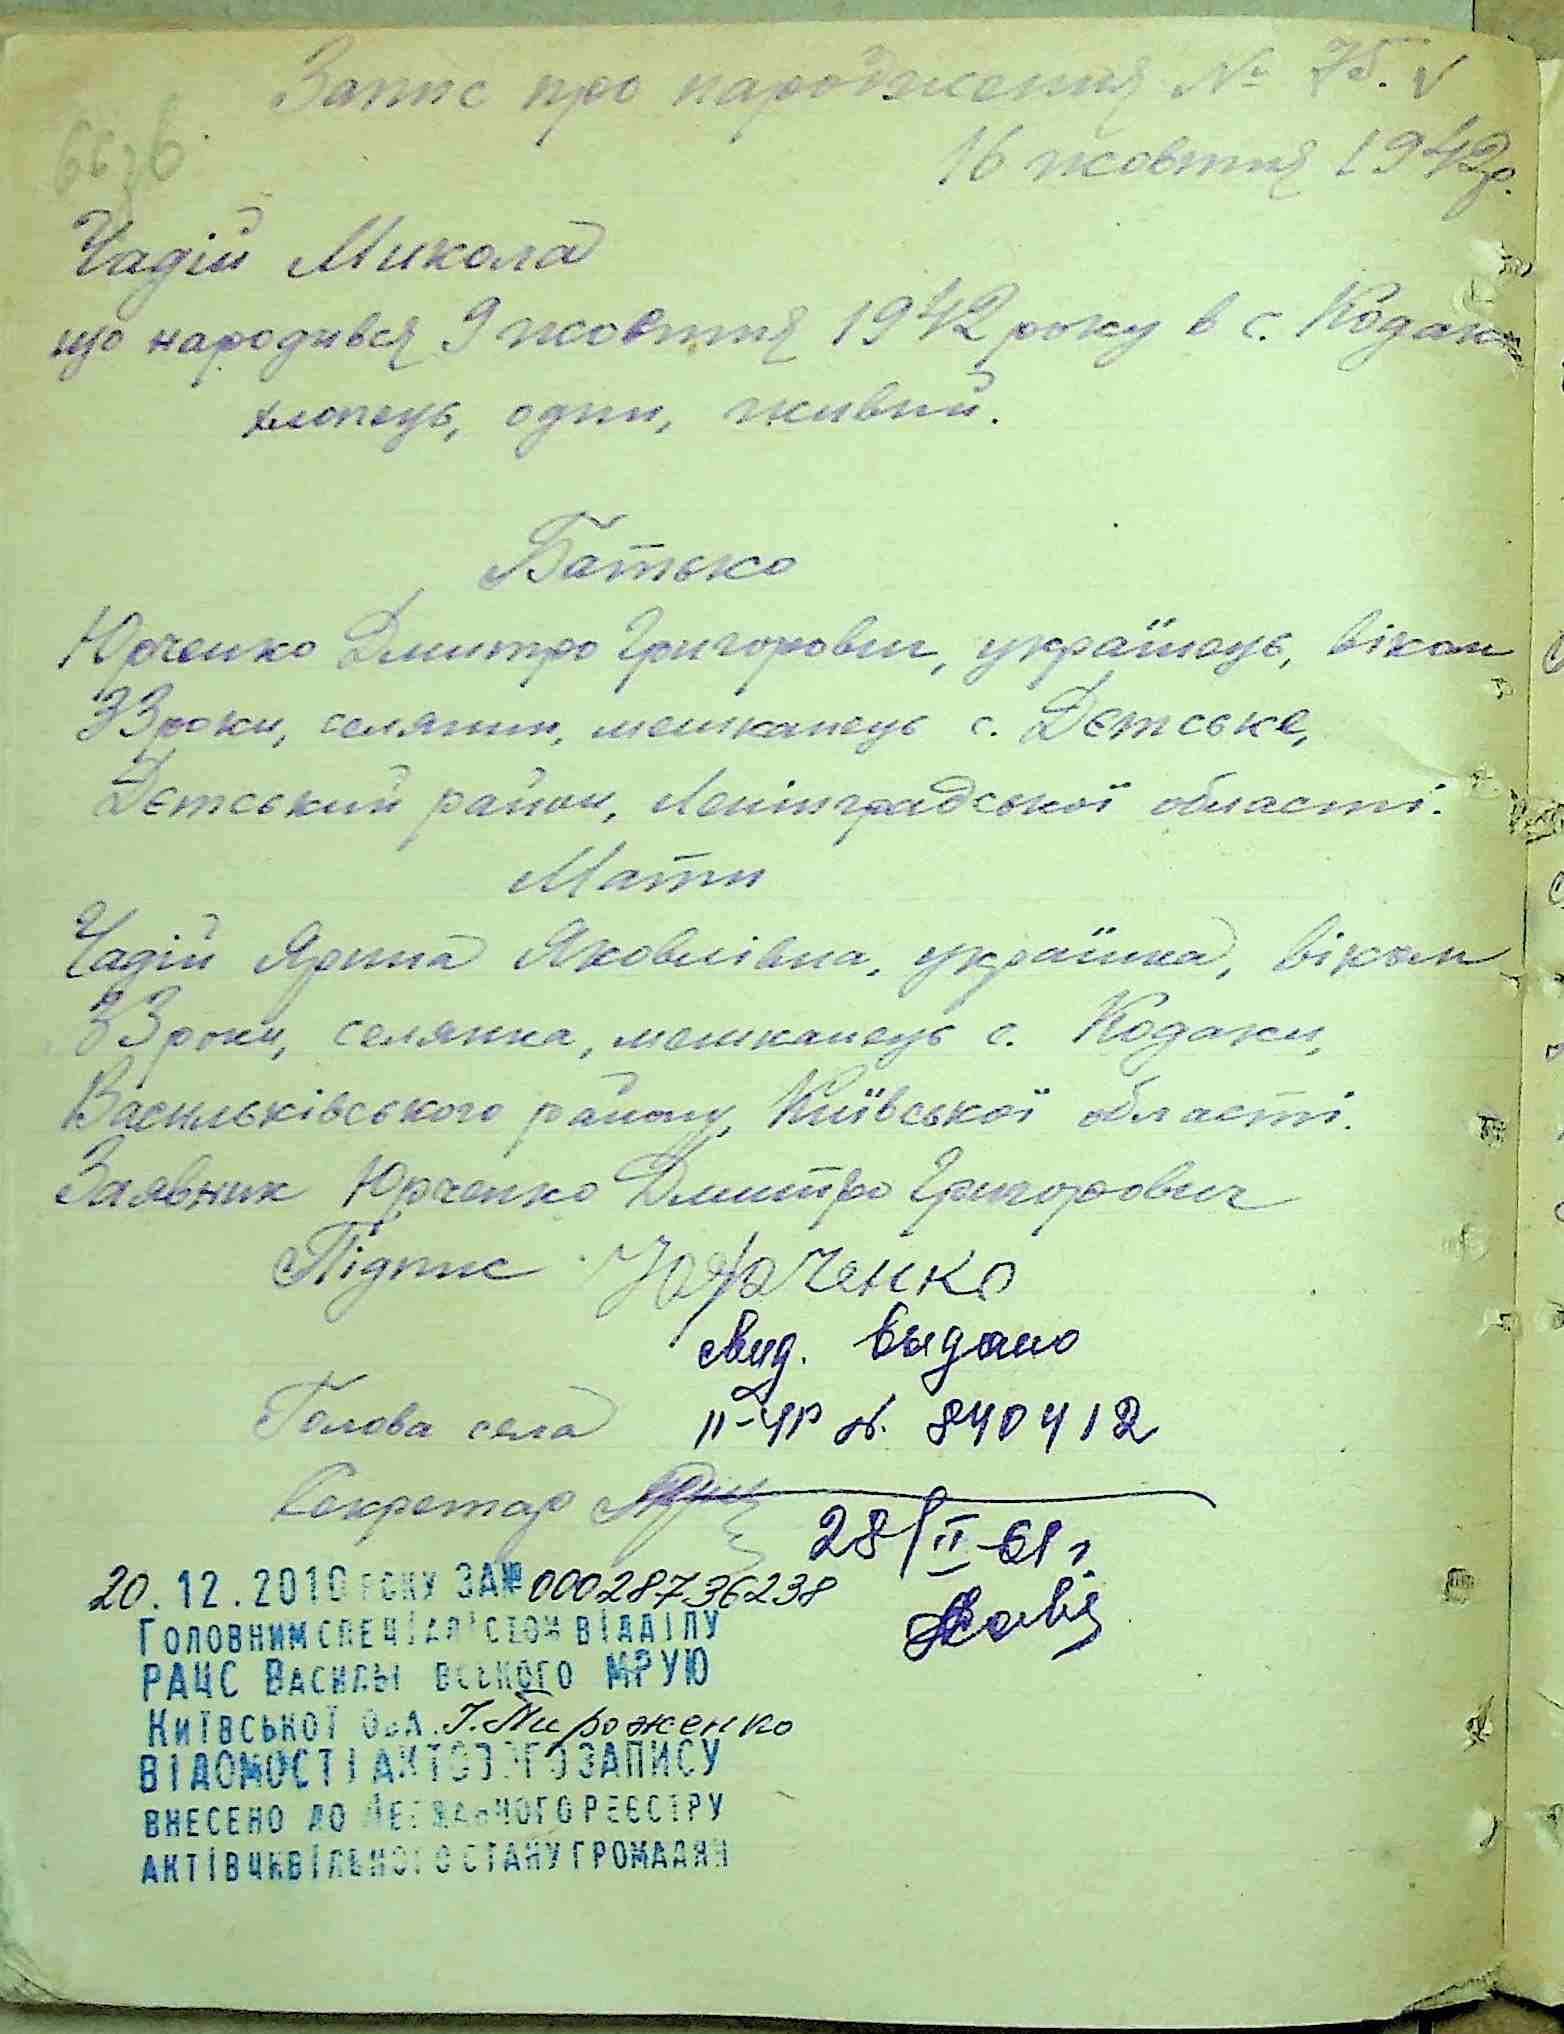 Запис про народження № 75.
16 жовтня 1942р.
Чадій Микола
що народився 9 жовтня 1942 року в с. Кодаки
хлопець, один, живий.
Батько
Юрченко Дмитро Григорович, українець, віком
33 роки, селянин, мешканець с. Дєтське,
Дєтський район, Ленінградської області.
Мати
Чадій Ярина Яковлівна, українка, віком
33 роки, селянка, мешканець с. Кодаки,
Васильківського району, Київської області.
Заявник Юрченко Дмитро Григорович
Підпис Юрченко
свид. выдано
Голова села II-ЧР №. 840412
Секретар
28/II-61 г.
20.12.2010 РОКУ ЗА № 00028736238
ГОЛОВНИМ СПЕЦІАЛІСТОМ ВІДДІЛУ
РАЦС ВАСИЛЬКІВСЬКОГО МРУЮ
КИЇВСЬКОЇ ОБЛ. І. Пироженко
ВІДОМОСТІ АКТОВОГО ЗАПИСУ
ВНЕСЕНО ДО ДЕРЖАВНОГО РЕЄСТРУ
АКТІВ ЦИВІЛЬНОГО СТАНУ ГРОМАДЯН